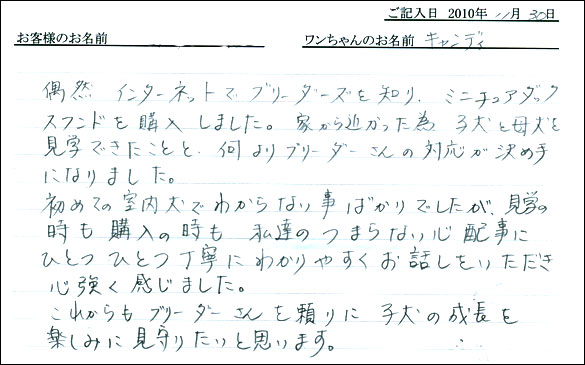 ご記入日 2010年 11月 30日
お客様のお名前 ワンちゃんのお名前 キャンディ
偶然 インターネットでブリーダーズを知り、ミニチュアダック
スフンドを購入しました。家から近かった為 子犬と母犬を
見学できたことと、何よりブリーダーさんの対応が決め手
になりました。
初めての室内犬でわからない事ばかりでしたが、見学の
時も購入の時も 私達のつまらない心配事に
ひとつひとつ丁寧にわかりやすくお話しをいただき
心強く感じました。
これからもブリーダーさんを頼りに子犬の成長を
楽しみに見守りたいと思います。